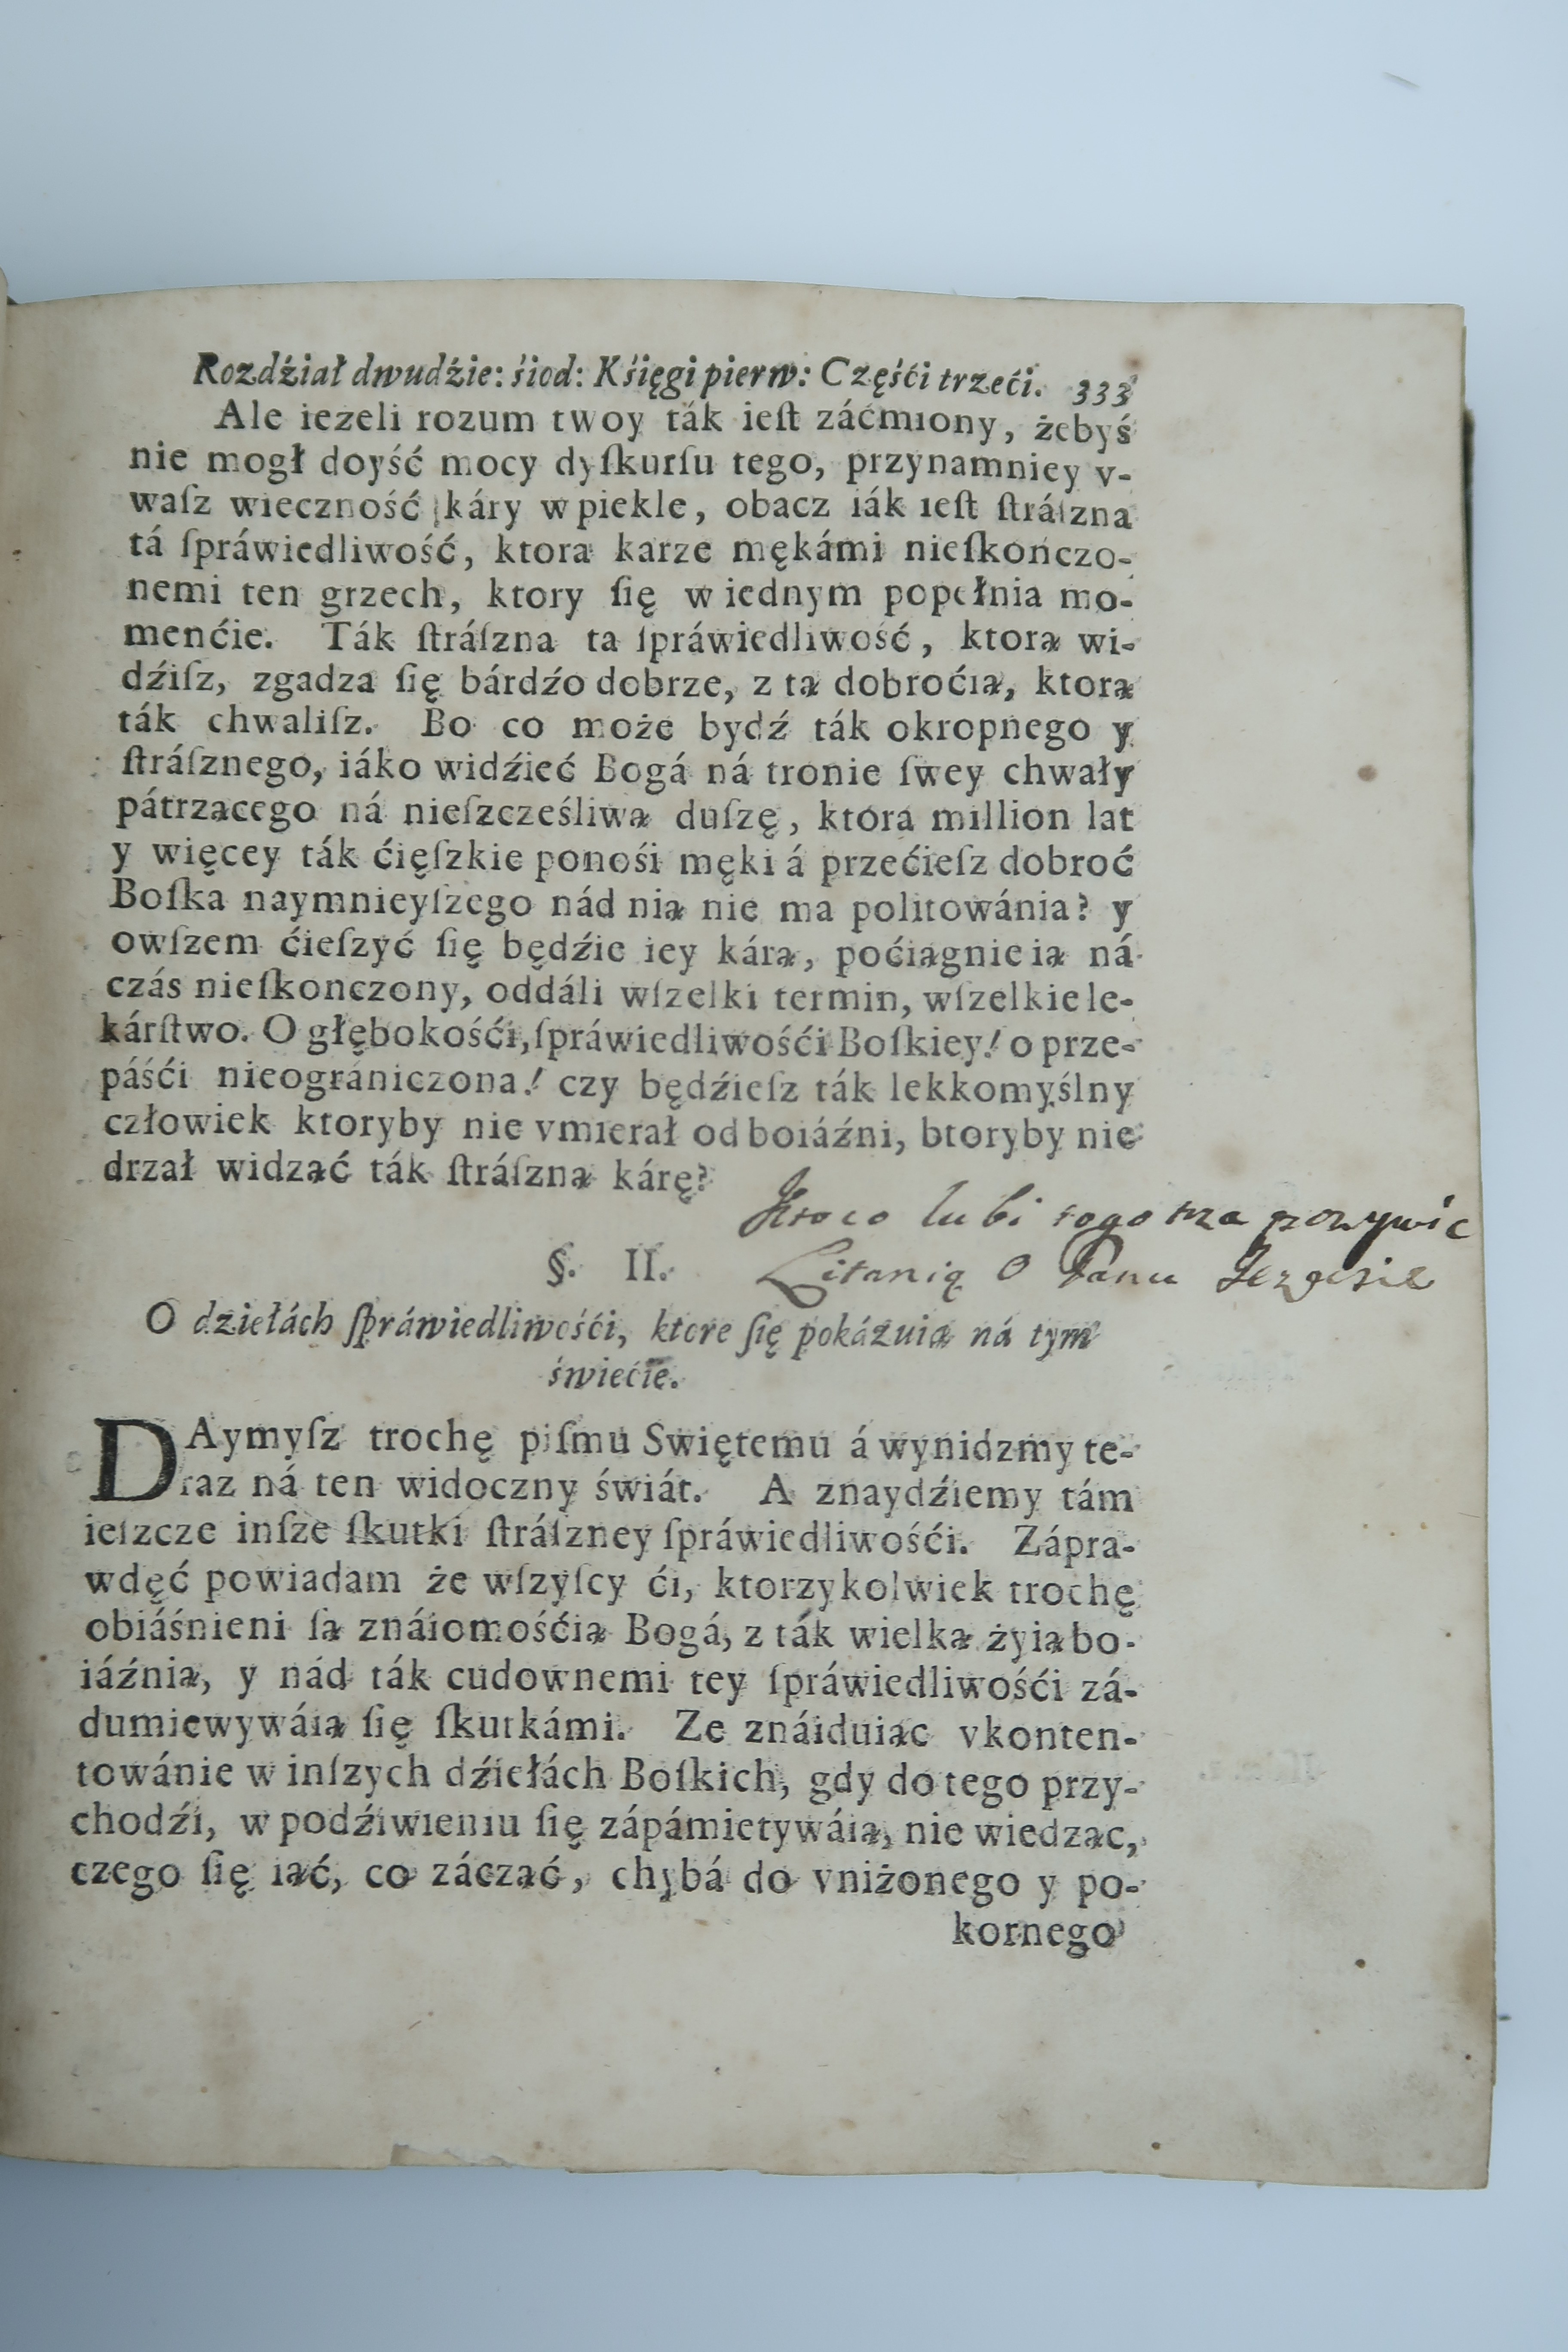 Rozdźiał dwudźie: śiod: Kśięgi pierw: Częśći trzeći. 333
Ale ieżeli rozum twoy ták ieſt záćmiony, żebyś
nie mogł doyść mocy dyſkurſu tego, przynamniey v-
waſz wieczność káry w piekle, obacz iák ieſt ſtráſzna
tá ſpráwiedliwość, ktora karze mękámi nieſkończo-
nemi ten grzech, ktory ſię w iednym popełnia mo-
menćie. Ták ſtráſzna ta ſpráwiedliwość, ktorą wi-
dźiſz, zgadza ſię bárdźo dobrze, z tą dobroćią, ktorą
ták chwaliſz. Bo co może bydź ták okropnego y
ſtráſznego, iáko widźieć Bogá ná tronie ſwey chwały
pátrzącego ná nieſzcześliwą duſzę, ktora million lat
y więcey ták ćięſzkie ponośi męki á przećieſz dobroć
Boſka naymnieyſzego nád nią nie ma politowánia? y
owſzem ćieſzyć ſię będźie iey kárą, poćiągnie ią ná
czás nieſkonczony, oddáli wſzelki termin, wſzelkie le-
kárſtwo. O głębokośći, ſpráwiedliwośći Boſkiey! o prze-
páśći nieográniczona! czy będźieſz ták lekkomyślny
człowiek ktoryby nie vmierał od boiáźni, btoryby nie
drzał widząć ták ſtráſzną kárę?
Kto co lubi togo
Litanią O Panu Jezusie
§. II.
O dziełách ſpráwiedliwośći, ktore ſię pokázuią ná tym
świećie.
DAymyſz trochę piſmu Swiętemu á wynidzmy te-
raz ná ten widoczny świát. A znaydźiemy tám
ieſzcze inſze ſkutki ſtráſzney ſpráwiedliwośći. Zápra-
wdęć powiadam że wſzyſcy ći, ktorzykolwiek trochę
obiáśnieni ſą znáiomośćią Bogá, z ták wielką żyią bo-
iáźnią, y nád ták cudownemi tey ſpráwiedliwośći zá-
dumiewywáią ſię ſkutkámi. Ze znáiduiąc vkonten-
towánie w inſzych dźiełách Boſkich, gdy do tego przy-
chodźi, w podźiwieniu ſię zápámietywáią, nie wiedząc,
czego ſię iąć, co zácząć, chybá do vniżonego y po-
kornego